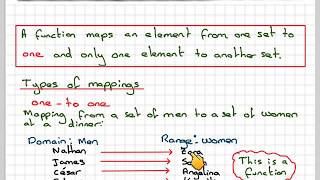 A function maps an element from one set to
one and only one element to another set.
Types of mappings
one - to one
Mapping from a set of men to a set of women
at a dinner:
Domain: Men Range: Women
Nathan Zora
James
César Angelina
This is a
function